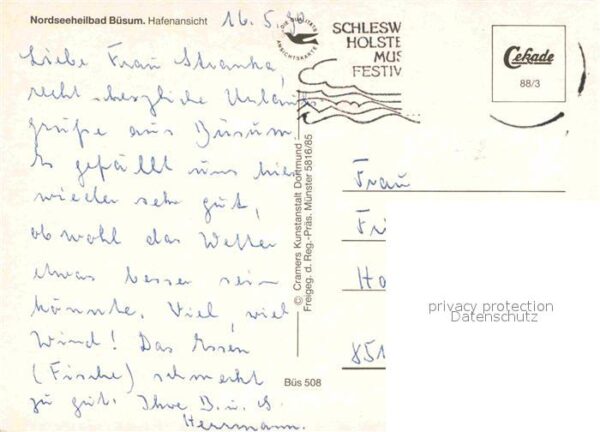 Nordseeheilbad Büsum. Hafenansicht
16.5.90
Liebe Frau Stranka,
recht herzliche Urlaubs-
grüße aus Büsum.
Es gefällt uns hier
wieder sehr gut,
ob wohl das Wetter
etwas besser sein
könnte. Viel, viel
Wind! Das Essen
(Fische) schmeckt
zu gut. Ihre B. u. S.
Herrmann.
DIE QUALITÄTS ANSICHTSKARTE
SCHLESW
HOLSTE
MUS
FESTIV
Cekade
88/3
© Cramers Kunstanstalt Dortmund
Freigeg. d. Reg.-Präs. Münster 5816/85
Büs 508
Frau
Fri
Ha
851
privacy protection
Datenschutz